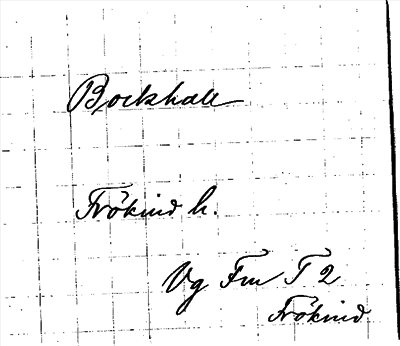 Bockhall
Frökind h.
Vg Fm T 2
Frökind